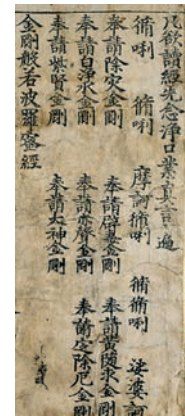 凡欲讀經先念淨口業真言一遍
脩唎 脩唎 摩訶脩唎 脩脩唎 娑婆訶
奉請除灾金剛 奉請辟毒金剛 奉請黄随求金剛
奉請白淨水金剛 奉請赤聲金剛 奉請定除厄金剛
奉請紫賢金剛 奉請大神金剛
金剛般若波羅蜜經